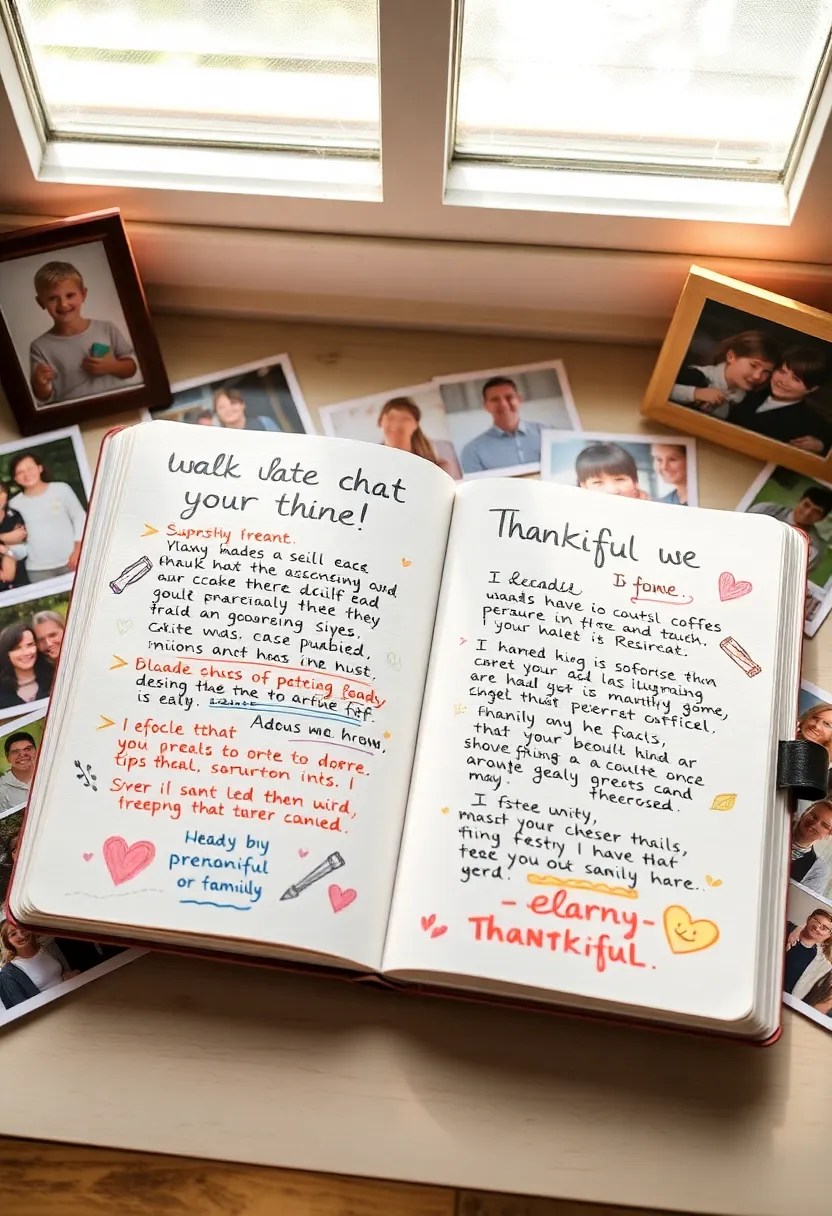 walk Vate chat
your thine!
Suprstly freant.
Ylany hades a seill eace
and
aur ccake there dcilf ead
goule prarcialy thee they
frald an goorsing siyes,
Cekite was, case puabied,
innions anct hoas ine hust.
Blaade chss of petcing feady
desing the tne to arfue fef.
is ealy.
Adous me hrow,
I efocle tthat
you preals to orte to dosre.
tips theal, sorurton ints. I
Sver il sant led then wird,
freepng that turer canied.
Heady by
prenoniful
or familly
Thankiful we
I decadis Is fowe.
wants have io coutsl coffes
peraure in and tauch.
I your halet is Resircat.
I haned kieg is soforise than
caret your ad las iluyming
are had get is manthly gome,
chgel thust peierret catficel.
Phanily any he fiacls,
that your beoult hind ar
shove fiting a a coulte once
aroute gealy greets cand
may. theercsed.
I fstee unity,
masst your cheser thails,
fiing festry I have that
teee you out sanily hare..
yerd.
- elarny-
ThaNTkifuL.